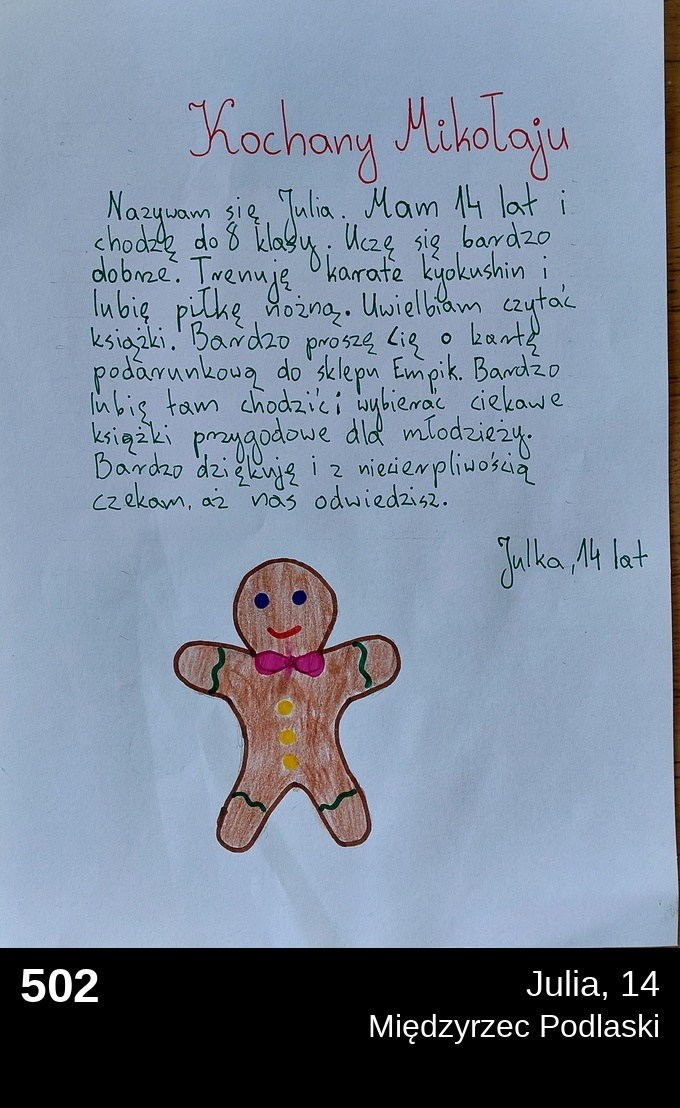 Kochany Mikołaju
Nazywam się Julia. Mam 14 lat i
chodzę do 8 klasy. Uczę się bardzo
dobrze. Trenuję karate kyokushin i
lubię piłkę nożną. Uwielbiam czytać
książki. Bardzo proszę Cię o kartę
podarunkową do sklepu Empik. Bardzo
lubię tam chodzić i wybierać ciekawe
książki przygodowe dla młodzieży.
Bardzo dziękuję i z niecierpliwością
czekam, aż nas odwiedzisz.
Julka, 14 lat
502
Julia, 14
Międzyrzec Podlaski